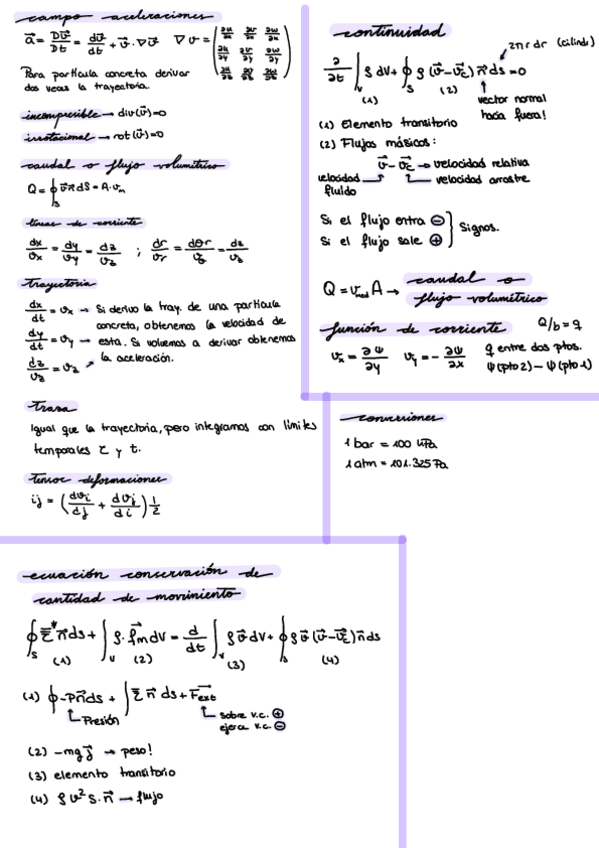 campo aceleraciones
a⃗ = Dv⃗/Dt = dv⃗/dt + v⃗·∇v⃗   ∇v = (∂u/∂x ∂v/∂x ∂w/∂x; ∂u/∂y ∂v/∂y ∂w/∂y; ∂u/∂z ∂v/∂z ∂w/∂z)
Para partícula concreta derivar
dos veces la trayectoria.
incompresible → div(v⃗)=0
irrotacional → rot(v⃗)=0
caudal o flujo volumétrico
Q = ∮s v⃗ n⃗ dS = A·vm
líneas de corriente
dx/vx = dy/vy = dz/vz ; dr/vr = dθr/vθ = dz/vz
trayectoria
dx/dt = vx → Si derivo la tray. de una partícula
concreta, obtenemos la velocidad de
dy/dt = vy → esta. Si volvemos a derivar obtenemos
la aceleración.
dz/dt = vz
traza
Igual que la trayectoria, pero integramos con límites
temporales τ y t.
tensor deformaciones
ij = (dvi/dj + dvj/di) 1/2
continuidad
2πr dr (cilindr)
∂/∂t ∫v ρ dV + ∮s ρ (v⃗-v⃗c) n⃗ ds = 0
(1) (2)
vector normal
hacia fuera!
(1) Elemento transitorio
(2) Flujos másicos:
v⃗ - v⃗c → velocidad relativa
velocidad fluido
velocidad arrastre
Si el flujo entra ⊖
Si el flujo sale ⊕
Signos.
Q = vmed A → caudal o
flujo volumétrico
función de corriente   Q/b = q
vx = ∂ψ/∂y   vy = -∂ψ/∂x   q entre dos ptos.
ψ(pto2) - ψ(pto1)
conversiones
1 bar = 100 kPa
1 atm = 101.325 Pa
ecuación conservación de
cantidad de movimiento
∮s Σ* n⃗ ds + ∫v ρ·f⃗m dV = d/dt ∫v ρ v⃗ dV + ∮s ρ v⃗ (v⃗-v⃗c) n⃗ ds
(1) (2) (3) (4)
(1) ∮ -P n⃗ ds + ∫ Σ n⃗ ds + F⃗ext
Presión
sobre v.c. ⊕
ejerce v.c. ⊖
(2) -mg j⃗ → peso!
(3) elemento transitorio
(4) ρ v² S·n⃗ → flujo